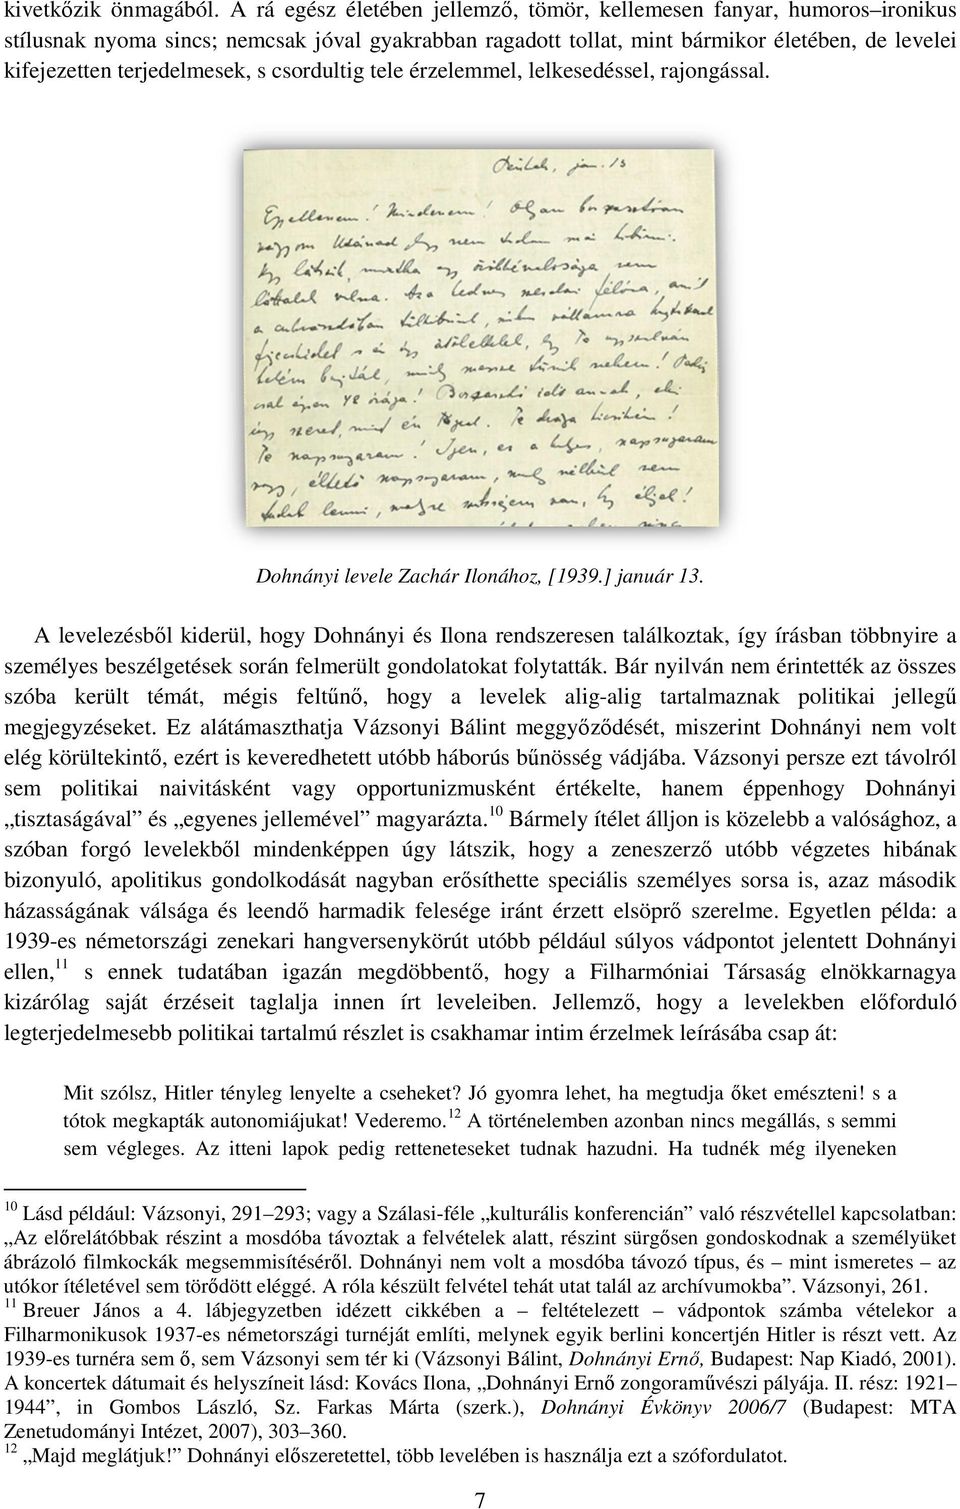 kivetkőzik önmagából. A rá egész életében jellemző, tömör, kellemesen fanyar, humoros–ironikus
stílusnak nyoma sincs; nemcsak jóval gyakrabban ragadott tollat, mint bármikor életében, de levelei
kifejezetten terjedelmesek, s csordultig tele érzelemmel, lelkesedéssel, rajongással.
jan. 13
Egyetlenem! Mindenem! Olyan borzasztóan
nagyom Utánad hogy nem tudom mai
látszik, mintha egy örökkévalósága nem
láttalak volna. félóra, amit
a vállamra
s én úgy átöleltelek, Te
messze tűnik nekem!
csak éppen 48 órája! Borzasztó idő annak, aki
úgy szeret, mint én Téged. Te drága kicsikém!
Te napsugaram! Igen, napsugaram
nagy, éltető napsugaram, mely nélkül nem
tudok lenni, van, éljek!
nincs
Dohnányi levele Zachár Ilonához, [1939.] január 13.
A levelezésből kiderül, hogy Dohnányi és Ilona rendszeresen találkoztak, így írásban többnyire a
személyes beszélgetések során felmerült gondolatokat folytatták. Bár nyilván nem érintették az összes
szóba került témát, mégis feltűnő, hogy a levelek alig-alig tartalmaznak politikai jellegű
megjegyzéseket. Ez alátámaszthatja Vázsonyi Bálint meggyőződését, miszerint Dohnányi nem volt
elég körültekintő, ezért is keveredhetett utóbb háborús bűnösség vádjába. Vázsonyi persze ezt távolról
sem politikai naivitásként vagy opportunizmusként értékelte, hanem éppenhogy Dohnányi
„tisztaságával” és „egyenes jellemével” magyarázta.10 Bármely ítélet álljon is közelebb a valósághoz, a
szóban forgó levelekből mindenképpen úgy látszik, hogy a zeneszerző utóbb végzetes hibának
bizonyuló, apolitikus gondolkodását nagyban erősíthette speciális személyes sorsa is, azaz második
házasságának válsága és leendő harmadik felesége iránt érzett elsöprő szerelme. Egyetlen példa: a
1939-es németországi zenekari hangversenykörút utóbb például súlyos vádpontot jelentett Dohnányi
ellen,11 s ennek tudatában igazán megdöbbentő, hogy a Filharmóniai Társaság elnökkarnagya
kizárólag saját érzéseit taglalja innen írt leveleiben. Jellemző, hogy a levelekben előforduló
legterjedelmesebb politikai tartalmú részlet is csakhamar intim érzelmek leírásába csap át:
Mit szólsz, Hitler tényleg lenyelte a cseheket? Jó gyomra lehet, ha megtudja őket emészteni! s a
tótok megkapták autonomiájukat! Vederemo.12 A történelemben azonban nincs megállás, s semmi
sem végleges. Az itteni lapok pedig retteneteseket tudnak hazudni. Ha tudnék még ilyeneken
10 Lásd például: Vázsonyi, 291–293; vagy a Szálasi-féle „kulturális konferencián” való részvétellel kapcsolatban:
„Az előrelátóbbak részint a mosdóba távoztak a felvételek alatt, részint sürgősen gondoskodnak a személyüket
ábrázoló filmkockák megsemmisítéséről. Dohnányi nem volt a mosdóba távozó típus, és – mint ismeretes – az
utókor ítéletével sem törődött eléggé. A róla készült felvétel tehát utat talál az archívumokba”. Vázsonyi, 261.
11 Breuer János a 4. lábjegyzetben idézett cikkében a – feltételezett – vádpontok számba vételekor a
Filharmonikusok 1937-es németországi turnéját említi, melynek egyik berlini koncertjén Hitler is részt vett. Az
1939-es turnéra sem ő, sem Vázsonyi sem tér ki (Vázsonyi Bálint, Dohnányi Ernő, Budapest: Nap Kiadó, 2001).
A koncertek dátumait és helyszíneit lásd: Kovács Ilona, „Dohnányi Ernő zongoraművészi pályája. II. rész: 1921–
1944”, in Gombos László, Sz. Farkas Márta (szerk.), Dohnányi Évkönyv 2006/7 (Budapest: MTA
Zenetudományi Intézet, 2007), 303–360.
12 „Majd meglátjuk!” Dohnányi előszeretettel, több levelében is használja ezt a szófordulatot.
7